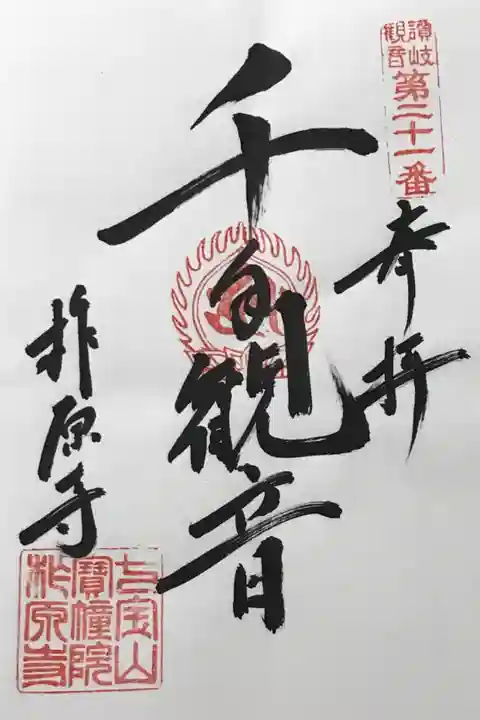 讃岐
観音
第二十一番
奉拝
千手観音
柞原寺
七宝山
寶幢院
柞原寺